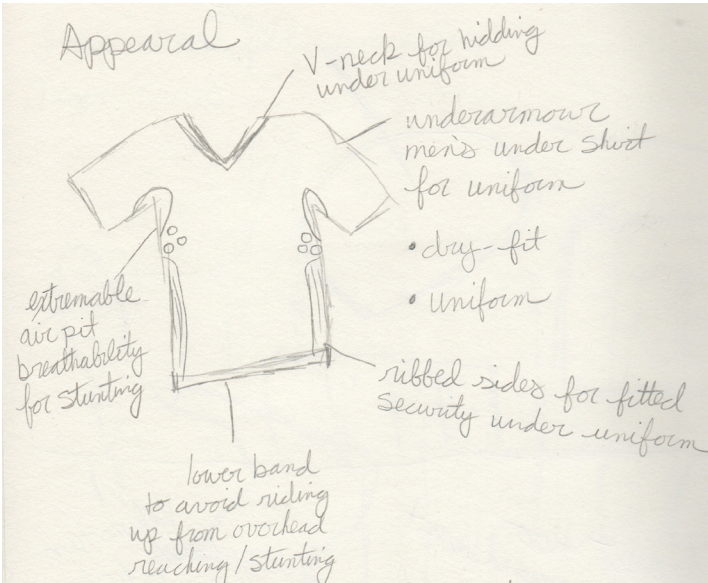 Appearal
V-neck for hidding
under uniform
underarmour
men's under shirt
for uniform
• dry-fit
• uniform
extremable
air pit
breathability
for stunting
ribbed sides for fitted
security under uniform
lower band
to avoid riding
up from overhead
reaching/stunting